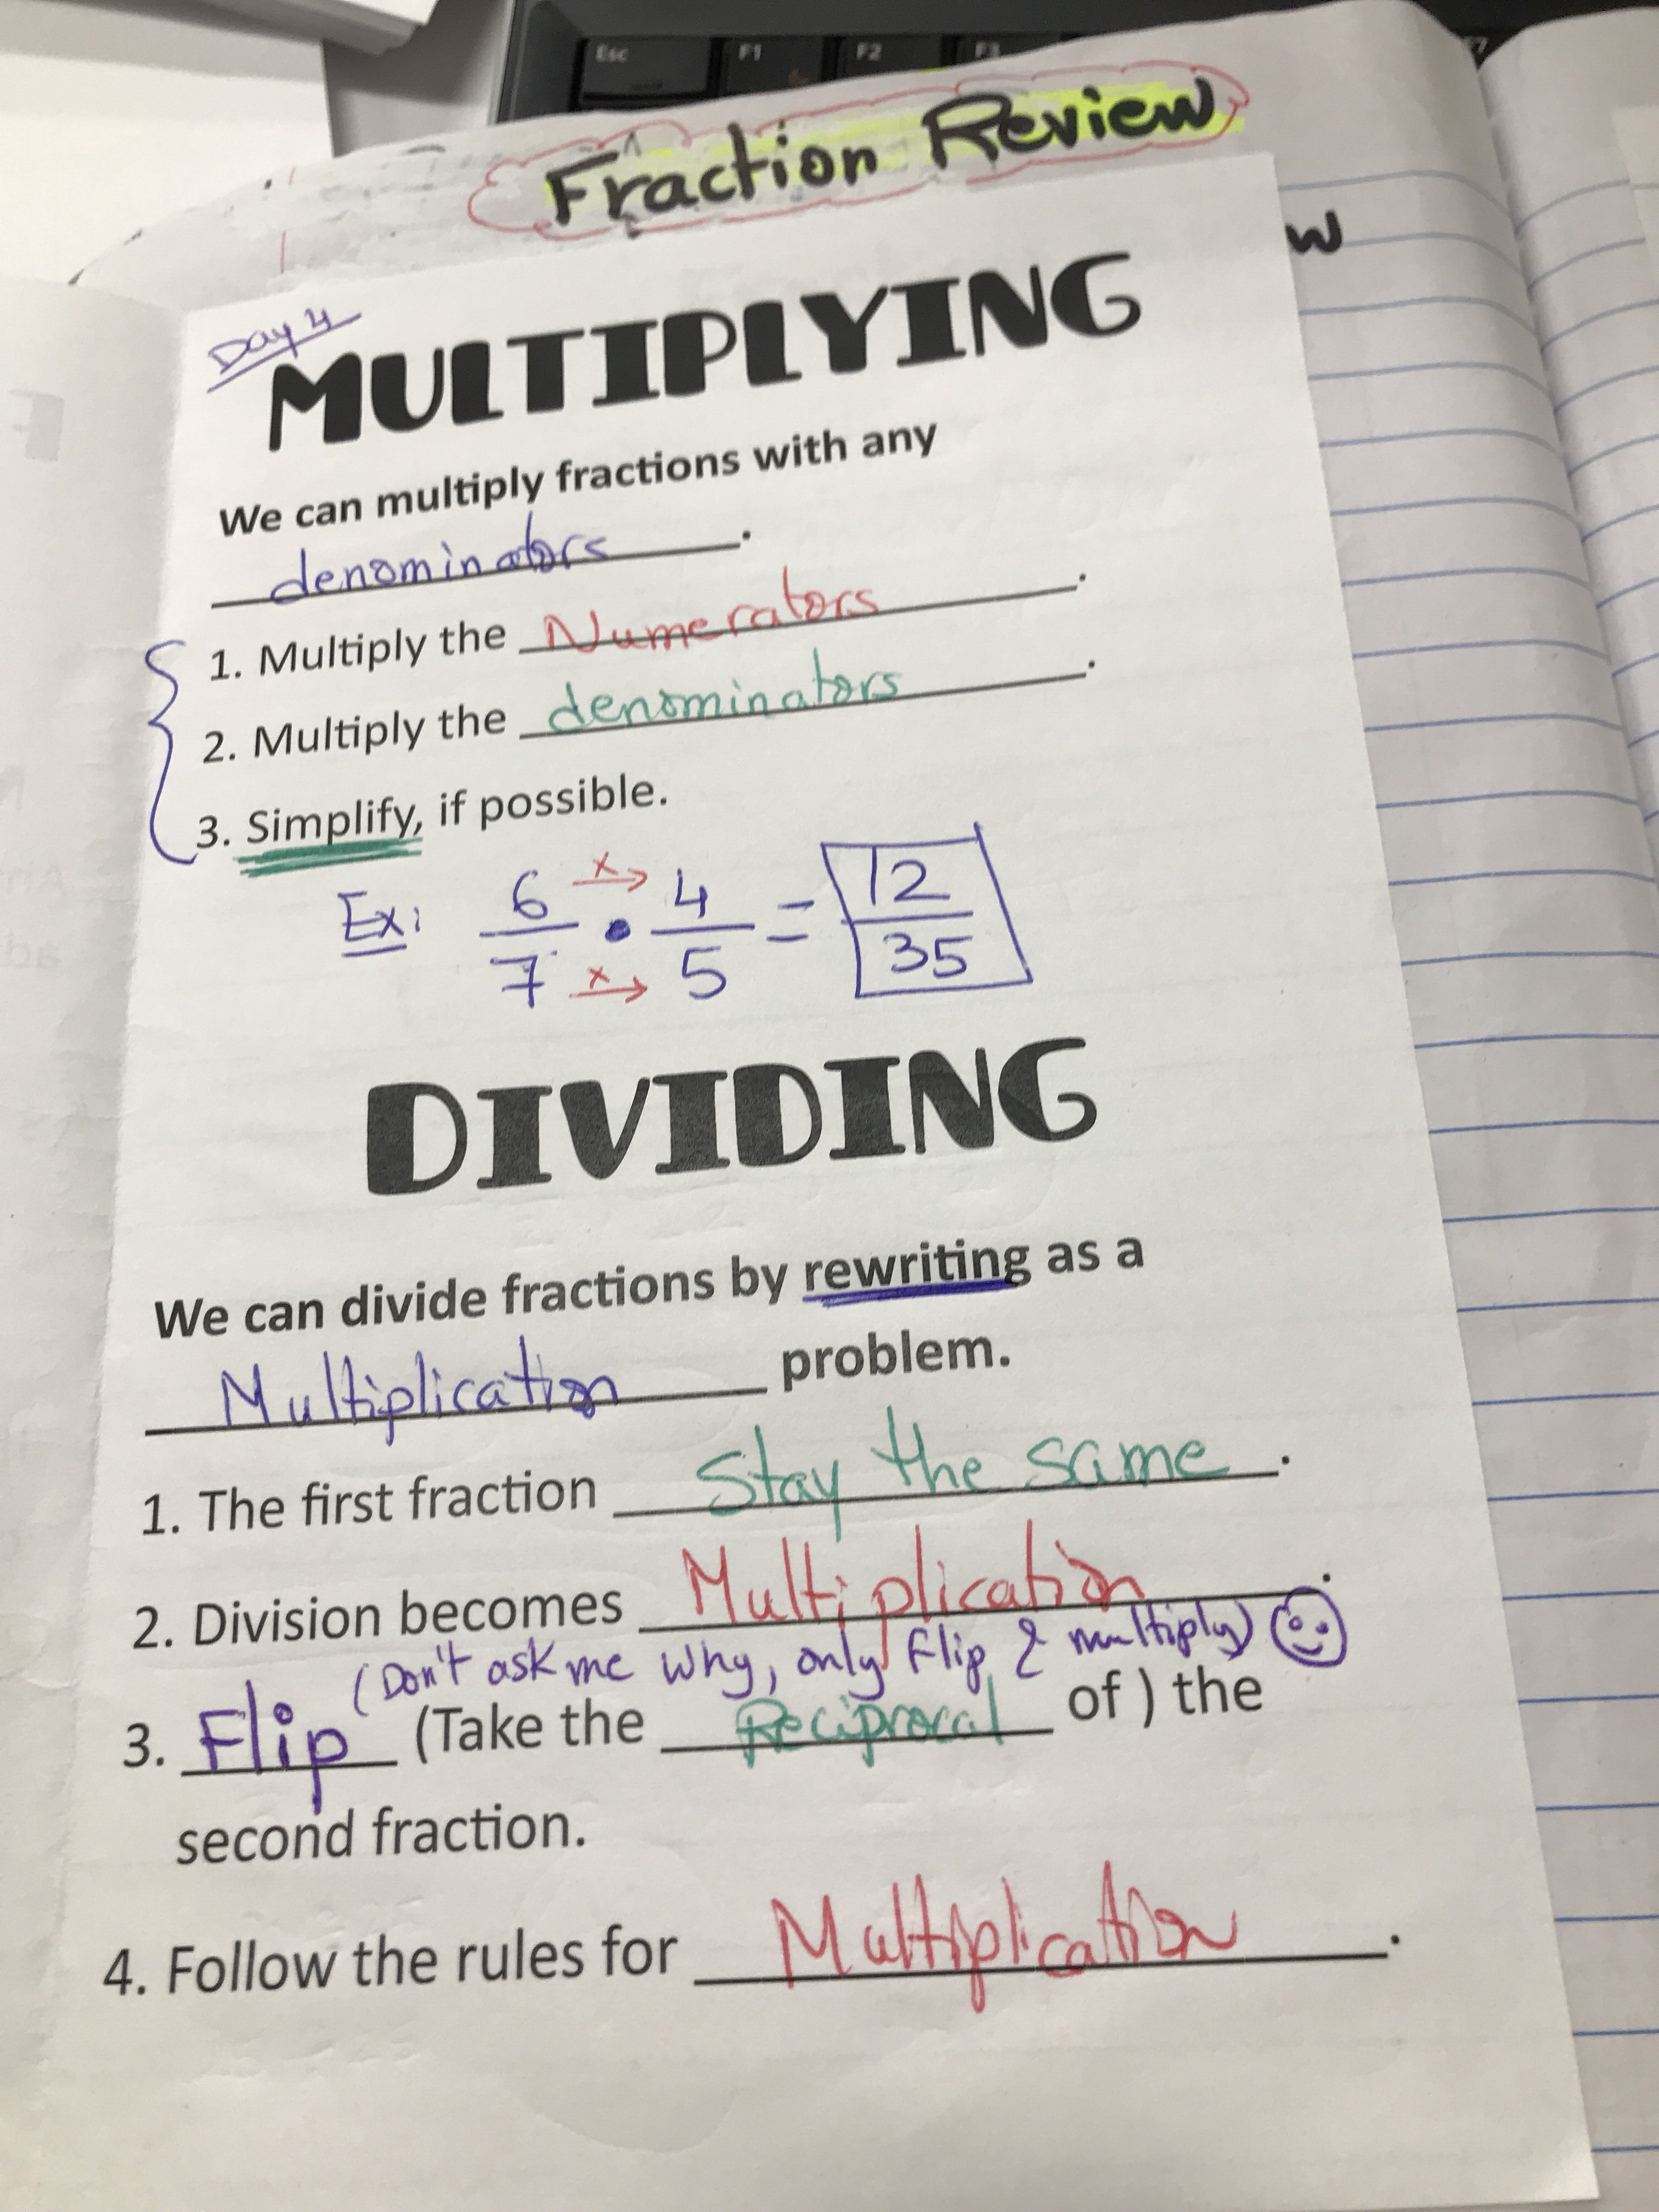 Esc F1 F2 F3 F7
Fraction Review
w
Day 4
MULTIPLYING
We can multiply fractions with any
denominators.
1. Multiply the Numerators.
2. Multiply the denominators.
3. Simplify, if possible.
Ex: 6/7 • 4/5 = 12/35
x→
x→
DIVIDING
We can divide fractions by rewriting as a
Multiplication problem.
1. The first fraction Stay the same.
2. Division becomes Multiplication.
(Don't ask me why, only flip & multiply)
3. Flip (Take the Reciprocal of ) the
second fraction.
4. Follow the rules for Multiplication.